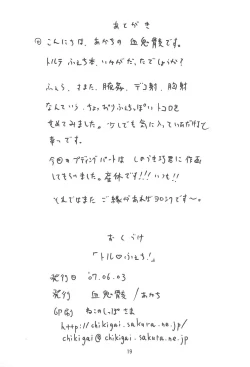 あとがき
◎こんにちは、あかちの血鬼骸です。
トルテふぇち本、いかがだったでしょうか?
ふともも、またた、腋姦、デコ射、胸射
なんていう、ちょっぴりふぇちっぽいトコロを
せめてみました。少しでも気に入っていただけて
幸っです。
今回のプディングパートは
してもらいました。産休です!!!いつも!!
それではまた ご縁があればヨロシクです〜。
おくづけ
「トル♡ふぇち!」
発行日 '07.06.03
発行 血鬼骸/あかち
印刷 ねこのしっぽさま
http://chikigai.sakura.ne.jp/
chikigai@chikigai.sakura.ne.jp
19